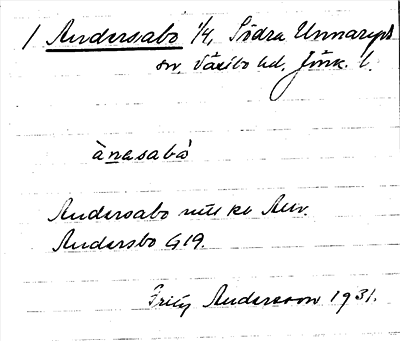 / Andersabo 1/4, Södra Unnaryds
sn, Västbo hd, Jönk. l.
ànasabò
Andersabo
Andersbo G19.
Fritz Andersson 1931.